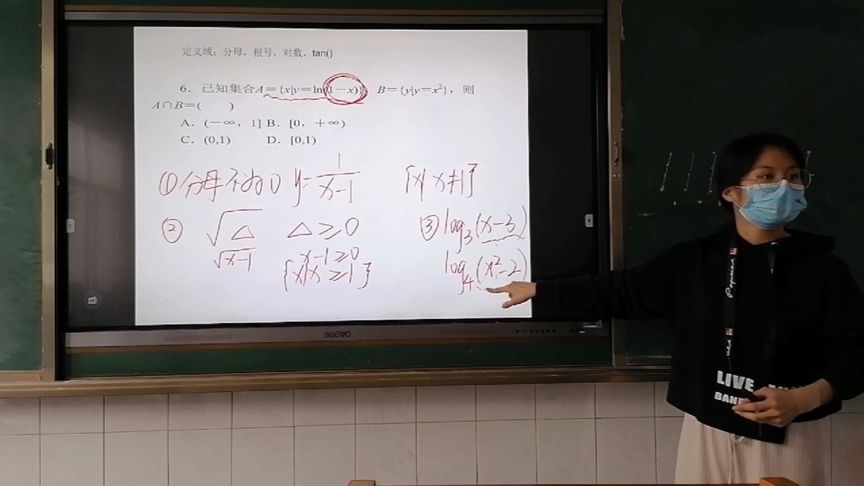 定义域：分母，根号，对数，tan()
6．已知集合A＝{x|y＝ln(1－x)}，B＝{y|y＝x²}，则
A∩B＝(  )
A．(－∞，1] B．[0，＋∞)
C．(0,1) D．[0,1)
①分母不为0 y=1/(x-1) {x|x≠1}
② √△ △≥0 ③log₃(x-3)
√x-1 x-1≥0 log₄(x²-2)
{x|x≥1}
seewo
LIVE
BAND